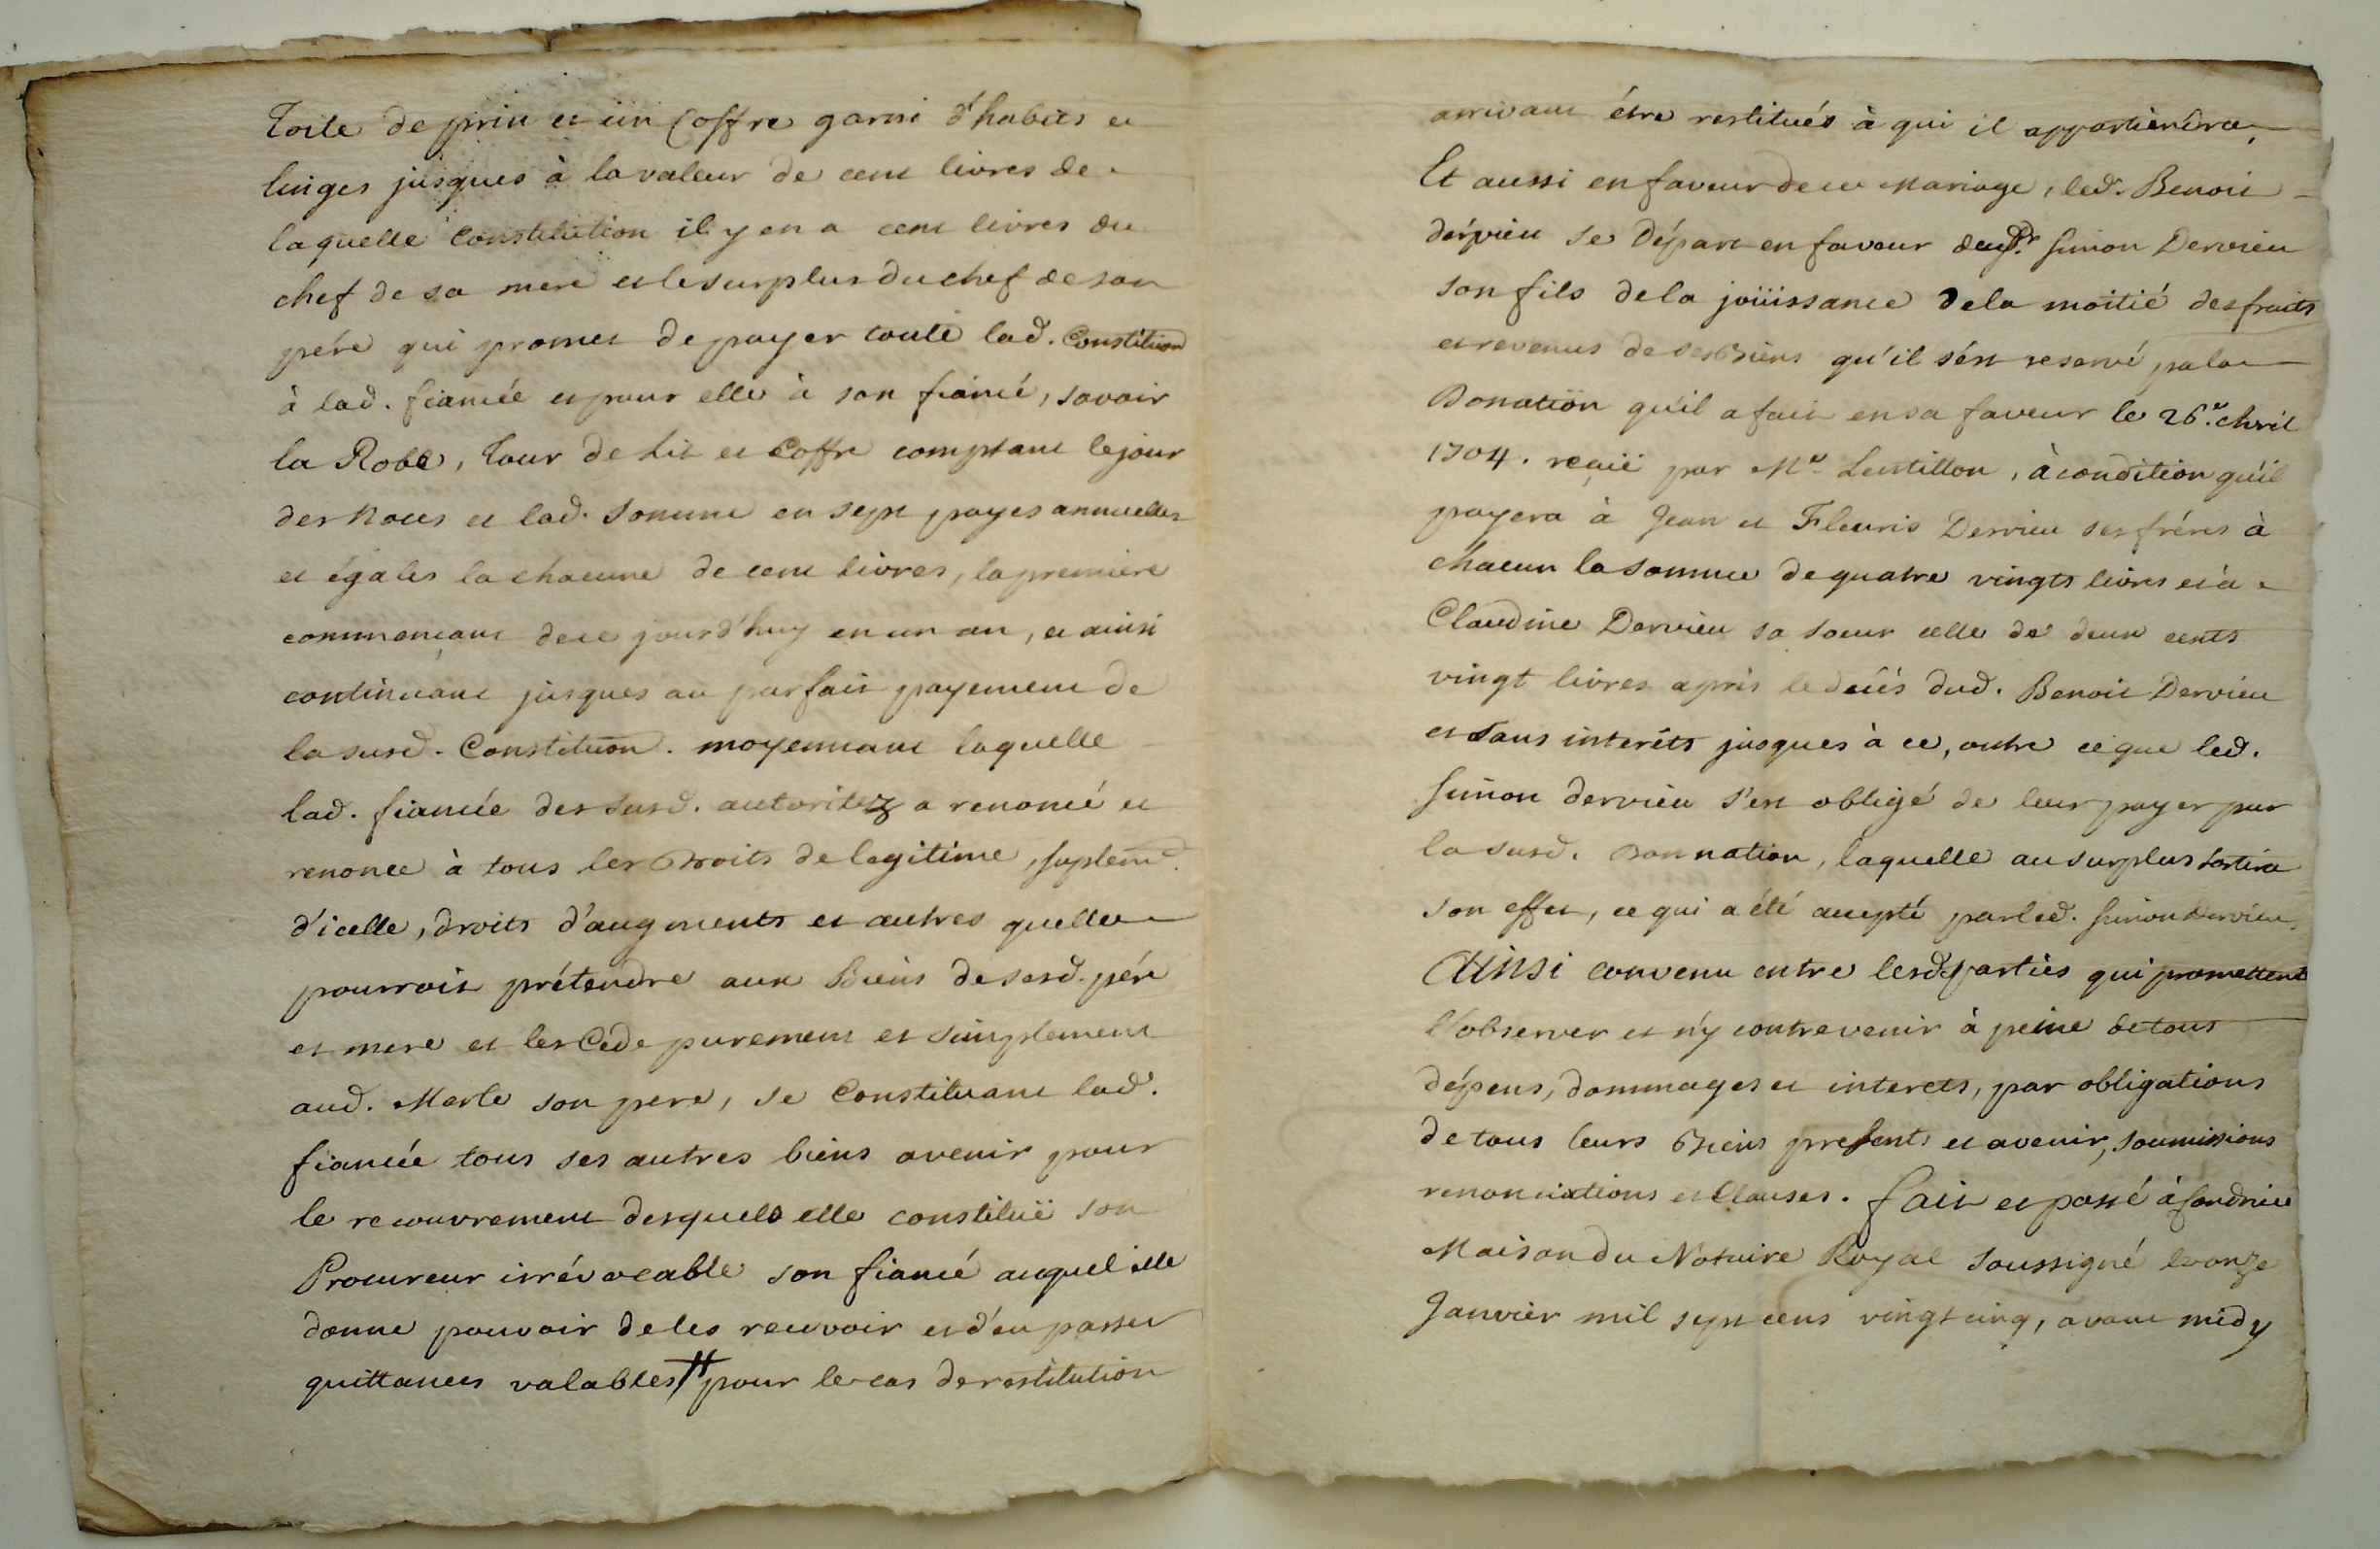 toile de prin et un Coffre garni d'habits et
linges jusques à la valeur de cent livres de
laquelle Constitution il y en a cent livres du
chef de sa mere et le surplus du chef de son
pére qui promet de payer toute lad. Constitu͠on
à lad. fiancée et pour elle à son fiancé, savoir
la Robe, tour de Lit et Coffre comptant le jour
des Noces et lad. somme en sept payes annuelles
et égales la chacune de cent livres, la premiere
commençant de ce jourd'huy en un an, et ainsi
continuant jusques au parfait payement de
la susd. Constitu͠on. moyennant laquelle
lad. fiancée des susd. autoritez a renoncé et
renonce à tous les Droits de legitime, suplem.
d'icelle, droits d'augments et autres quelle
pourroit prétendre aux Biens de sesd. pére
et mere et les Cede purement et simplement
aud. Merle son pere, se Constituant lad.
fiancée tous ses autres biens avenir pour
le recouvrement desquels elle constituë son
Procureur irrévocable son fiancé auquel elle
donne pouvoir de les recevoir et d'en passer
quittances valables # pour le cas de restitution
arrivant étre restitués à qui il appartiendra,
Et aussi en faveur de ce Mariage, led. Benoit
dervieu se Départ en faveur dud. Simon Dervieu
son fils de la joüissance de la moitié des fruits
et revenus de ses Biens qu'il s'est reservé par la
Donation qu'il a fait en sa faveur le 26.e Avril
1704. reçuë par Me. Lentillon, à condition qu'il
payera à Jean et Fleuris Dervieu ses fréres à
chacun la somme de quatre vingts livres et à
Claudine Dervieu sa soeur celle de deux cents
vingt livres après le décés dud. Benoit Dervieu
et sans interéts jusques à ce, outre ce que led.
Simon dervieu s'est obligé de leur payer par
la susd. Donnation, laquelle au surplus sortira
son effet, ce qui a été accepté par led. Simon Dervieu,
Ainsi convenu entre lesd. parties qui promettent
l'observer et n'y contrevenir à peine de tous
dépens, dommages et interets, par obligations
de tous leurs Biens presents et avenir, soumissions
renonciations et Clauses. fait et passé à
Maison du Notaire Royal soussigné le onze
Janvier mil sept cens vingt cinq, avant midy